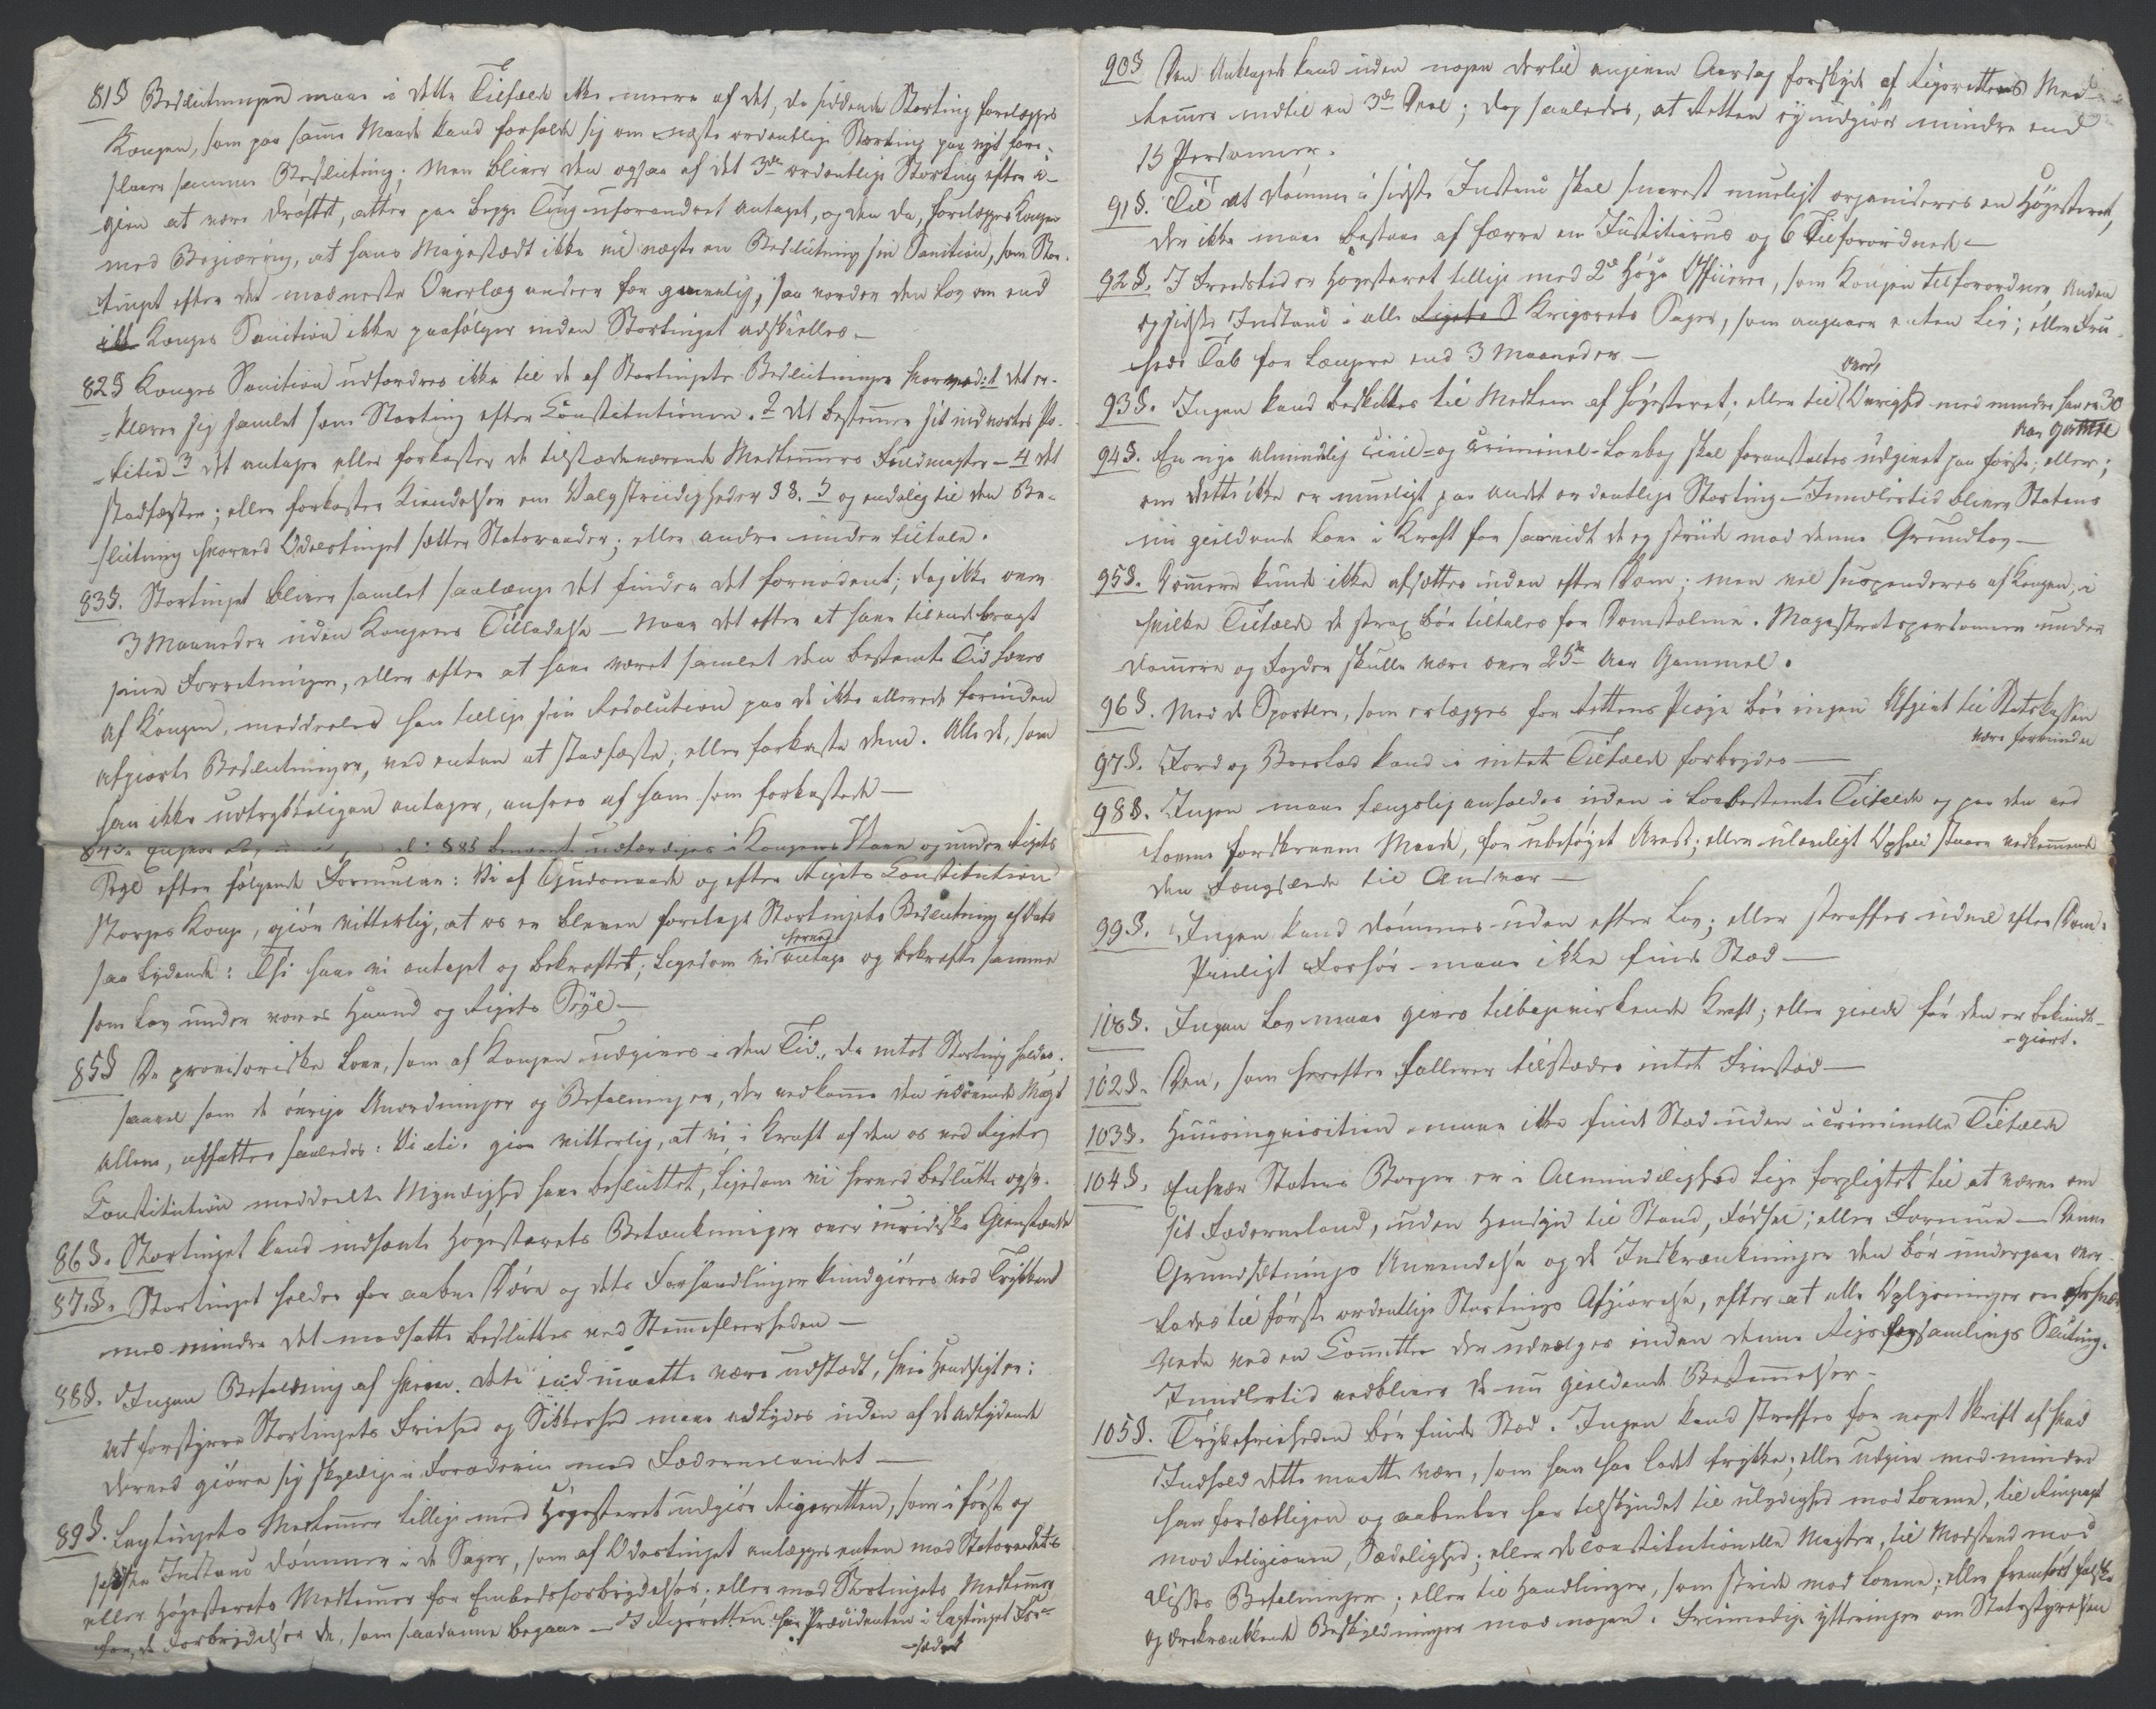 81§ Beslutningen maae i dette Tilfælde ikke meere af det, da siddende Storting forelægges
Kongen, som paa samme Maade kand forholde sig om næste ordentlige Storting paa nyt fore-
slaaer samme Beslutning; Men bliver den ogsaa af det 3die ordentlige Storting efter i-
gien at være drøftet, atter paa begge Ting uforandret antaget, og den da, forelægges Kongen
med Begiæring, at hans Majestædt ikke vil negte en Beslutning sin Sanction, som Stor-
tinget efter det modneste Overlæg anseer for gavnlig, saa vorder den Lov om end
Konges Sanction ikke paafølger inden Stortinget adskilles.—
82§ Konges Sanction udfordres ikke til de af Stortingets Beslutninger hvorved: 1 det er-
-klærer sig samlet som Storting efter Constitutionen. 2 det bestemmer sit indvortes Po-
-litie 3 det antager eller forkaster de tilstædeværende Medlemmers Fuldmagter — 4 det
stadfæster; eller forkaster Kiendelser om Valgstridigheder 5 og endelig til den Be-
slutning hvorved Odelstinget sætter Statsraader; eller andre under tiltale.
83§. Stortinget bliver samlet saalænge det finder det fornødent; dog ikke over
3 Maaneder uden Kongens Tilladelse — Naar det efter at have tilendebragt
sine Forretninger, eller efter at have været samlet den bestemte Tid hæves
af Kongen, meddeeles han tillige sin Resolution paa de ikke allerede forinden
afgiorte Beslutninger, ved enten at stadfæste, eller forkaste dem. Alle de, som
han ikke udtrykkeligen antager, ansees af ham som forkastede —
84§. Enhver Lov udfærdiges i Kongens Navn og under Rigets
Segl efter følgende Formular: Vi af Gudsnaade og efter Rigets Constitution
Norges Konge, giør vitterlig, at os er bleven forelagt Stortingets Beslutning af Dato
saa lydende: Thi have vi antaget og bekræftet, ligesom vi herved antage og bekræfte samme
som Lov under vores Haand og Rigets Segl —
85§ De provisoriske Love, som af Kongen udgives i den Tid, da intet Storting holdes,
saavel som de øvrige Anordninger og Befalninger, der vedkomme den udøvende Magt
allene, affattes saaledes: Vi etc. giør vitterlig, at vi, i Kraft af den os ved Rigets
Constitution meddeelte Myndighed have besluttet, ligesom vi herved beslutte ogsv.
86§. Stortinget kand indhente Høgesterets Betænkninger over juridiske Gienstænde
87.§. Stortinget holdes for aabne Døre og dets Forhandlinger kundgiøres ved Trykken
med mindre det modsatte besluttes ved Stemmefleerheden —
88§. Ingen Befalning af hvem det end maatte være udstædt, hvis Hendsigt er:
at forstyrre Stortingets Friehed og Sikkerhed maae adlydes uden af de adlydende
derved giøre sig skyldige i Forræderie mod Fædernelandet —
89§. Lagtingets Medlemmer tillige med Høgesteret udgiør Rigsretten, som i første og
sidste Instans dømmer i de Sager, som af Odelstinget anlægges enten mod Statsraadets
eller Høgesterets Medlemmer for Embedsforbrydelser; eller mod Stortingets Medlemmer
for de Forbrydelser de, som saadanne begaae — I Rigsretten har Præsidenten i Lagtinget For-
-sædet
90§ Den Anklagede kand uden nogen dertil angiven Aarsag forskyde af Rigsrettens Med-
lemmer indtil en 3die Deel; dog saaledes, at Retten ey udgiør mindre end
15 Personner.
91§. Til at dømme i sidste Instans skal snarest mueligt organiseres en Høgesteret,
der ikke maae bestaae af færre en Justitiarius og 6 Tilforordnede —
92§. I Fredstid er Høgesteret tillige med 2de høge Officerer, som Kongen tilforordner, Anden
og sidste Instans i alle Rigets S Krigsrets Sager, som angaaer enten Liv; eller Frie-
heds Tab for længere end 3 Maaneder —
93§. Ingen kand beskikkes til Medlem af Høgesteret; eller til Over Øvrighed med mindre han er 30
Aar gammel
94§. En nye almindelig Civil- og Criminel-Lovbog skal foranstaltes udgivet paa første; eller;
om dette ikke er mueligt paa andet ordentlige Storting — Immidlertid bliver Statens
nu gieldende Love i Kraft for saavidt de ey stride mod denne Grundlov —
95§. Dommere kunde ikke afsættes uden efter Dom; men vel suspenderes af Kongen, i
hvilke Tilfælde de strax bør tiltales for Domstolene. Magistratspersonner under
dommere og Fogder skulle være over 25de Aar Gammel.
96§. Med de Sportler, som erlægges for Rettens Pleye bør ingen Afgivt til Statskassen
være forbunden
97§. Jord og Boeslod kand i intet Tilfælde forbrydes —
98§. Ingen maae fængslig anholdes uden i Lovbestemte Tilfælde og paa den ved
Lovene forskrevne Maade, for ubeføyet Arrest; eller ulovligt Ophold staaer vedkommende
den Fængslede til Ansvar —
99§. Ingen kand dømmes uden efter Lov; eller straffes uden efter Dom.
Pinligt Forhør maae ikke finde Sted —
108§. Ingen Lov maae gives tilbagevirkende Kraft; eller gielde før den er bekiendt-
-giort.
102§. Den, som herefter fallerer tilstædes intet Friestæd —
103§. Huusinqvisition maae ikke finde Sted uden i criminelle Tilfælde
104§. Enhver Statens Borger er i Almindelighed lige forpligtet til at værne om
sit Fæderneland, uden Hensyn til Stand, Fødsel; eller Formue — Denne
Grundsetnings Anvendelse og de Indskrænkninger den bør undergaae over-
lades til første ordentlige Stortings Afgiørelse, efter at alle Oplysninger er erhver-
vede ved en Comittee der udvælges inden denne Rigsforsamlings Slutning.
Imidlertid vedblive de nu gieldende Bestemmelser —
105§. Trykfriheden bør finde Sted. Ingen kand straffes for noget Skrift af hvad
Indhold dette maatte være, som han har ladet trykke; eller udgive med mindre
han forsætligen og aabenbar har tilskyndet til ulydighed mod Lovene, til Ringeagt
mod Religionen, Sædelighed; eller de Constitutionelle Magter, til Modstand mod
disses Befalninger; eller til Handlinger, som stride mod Lovene; eller fremført falske
og ærekrænkkende Beskyldninger mod nogen. Freimodige yttringer om Statsstyrelsen